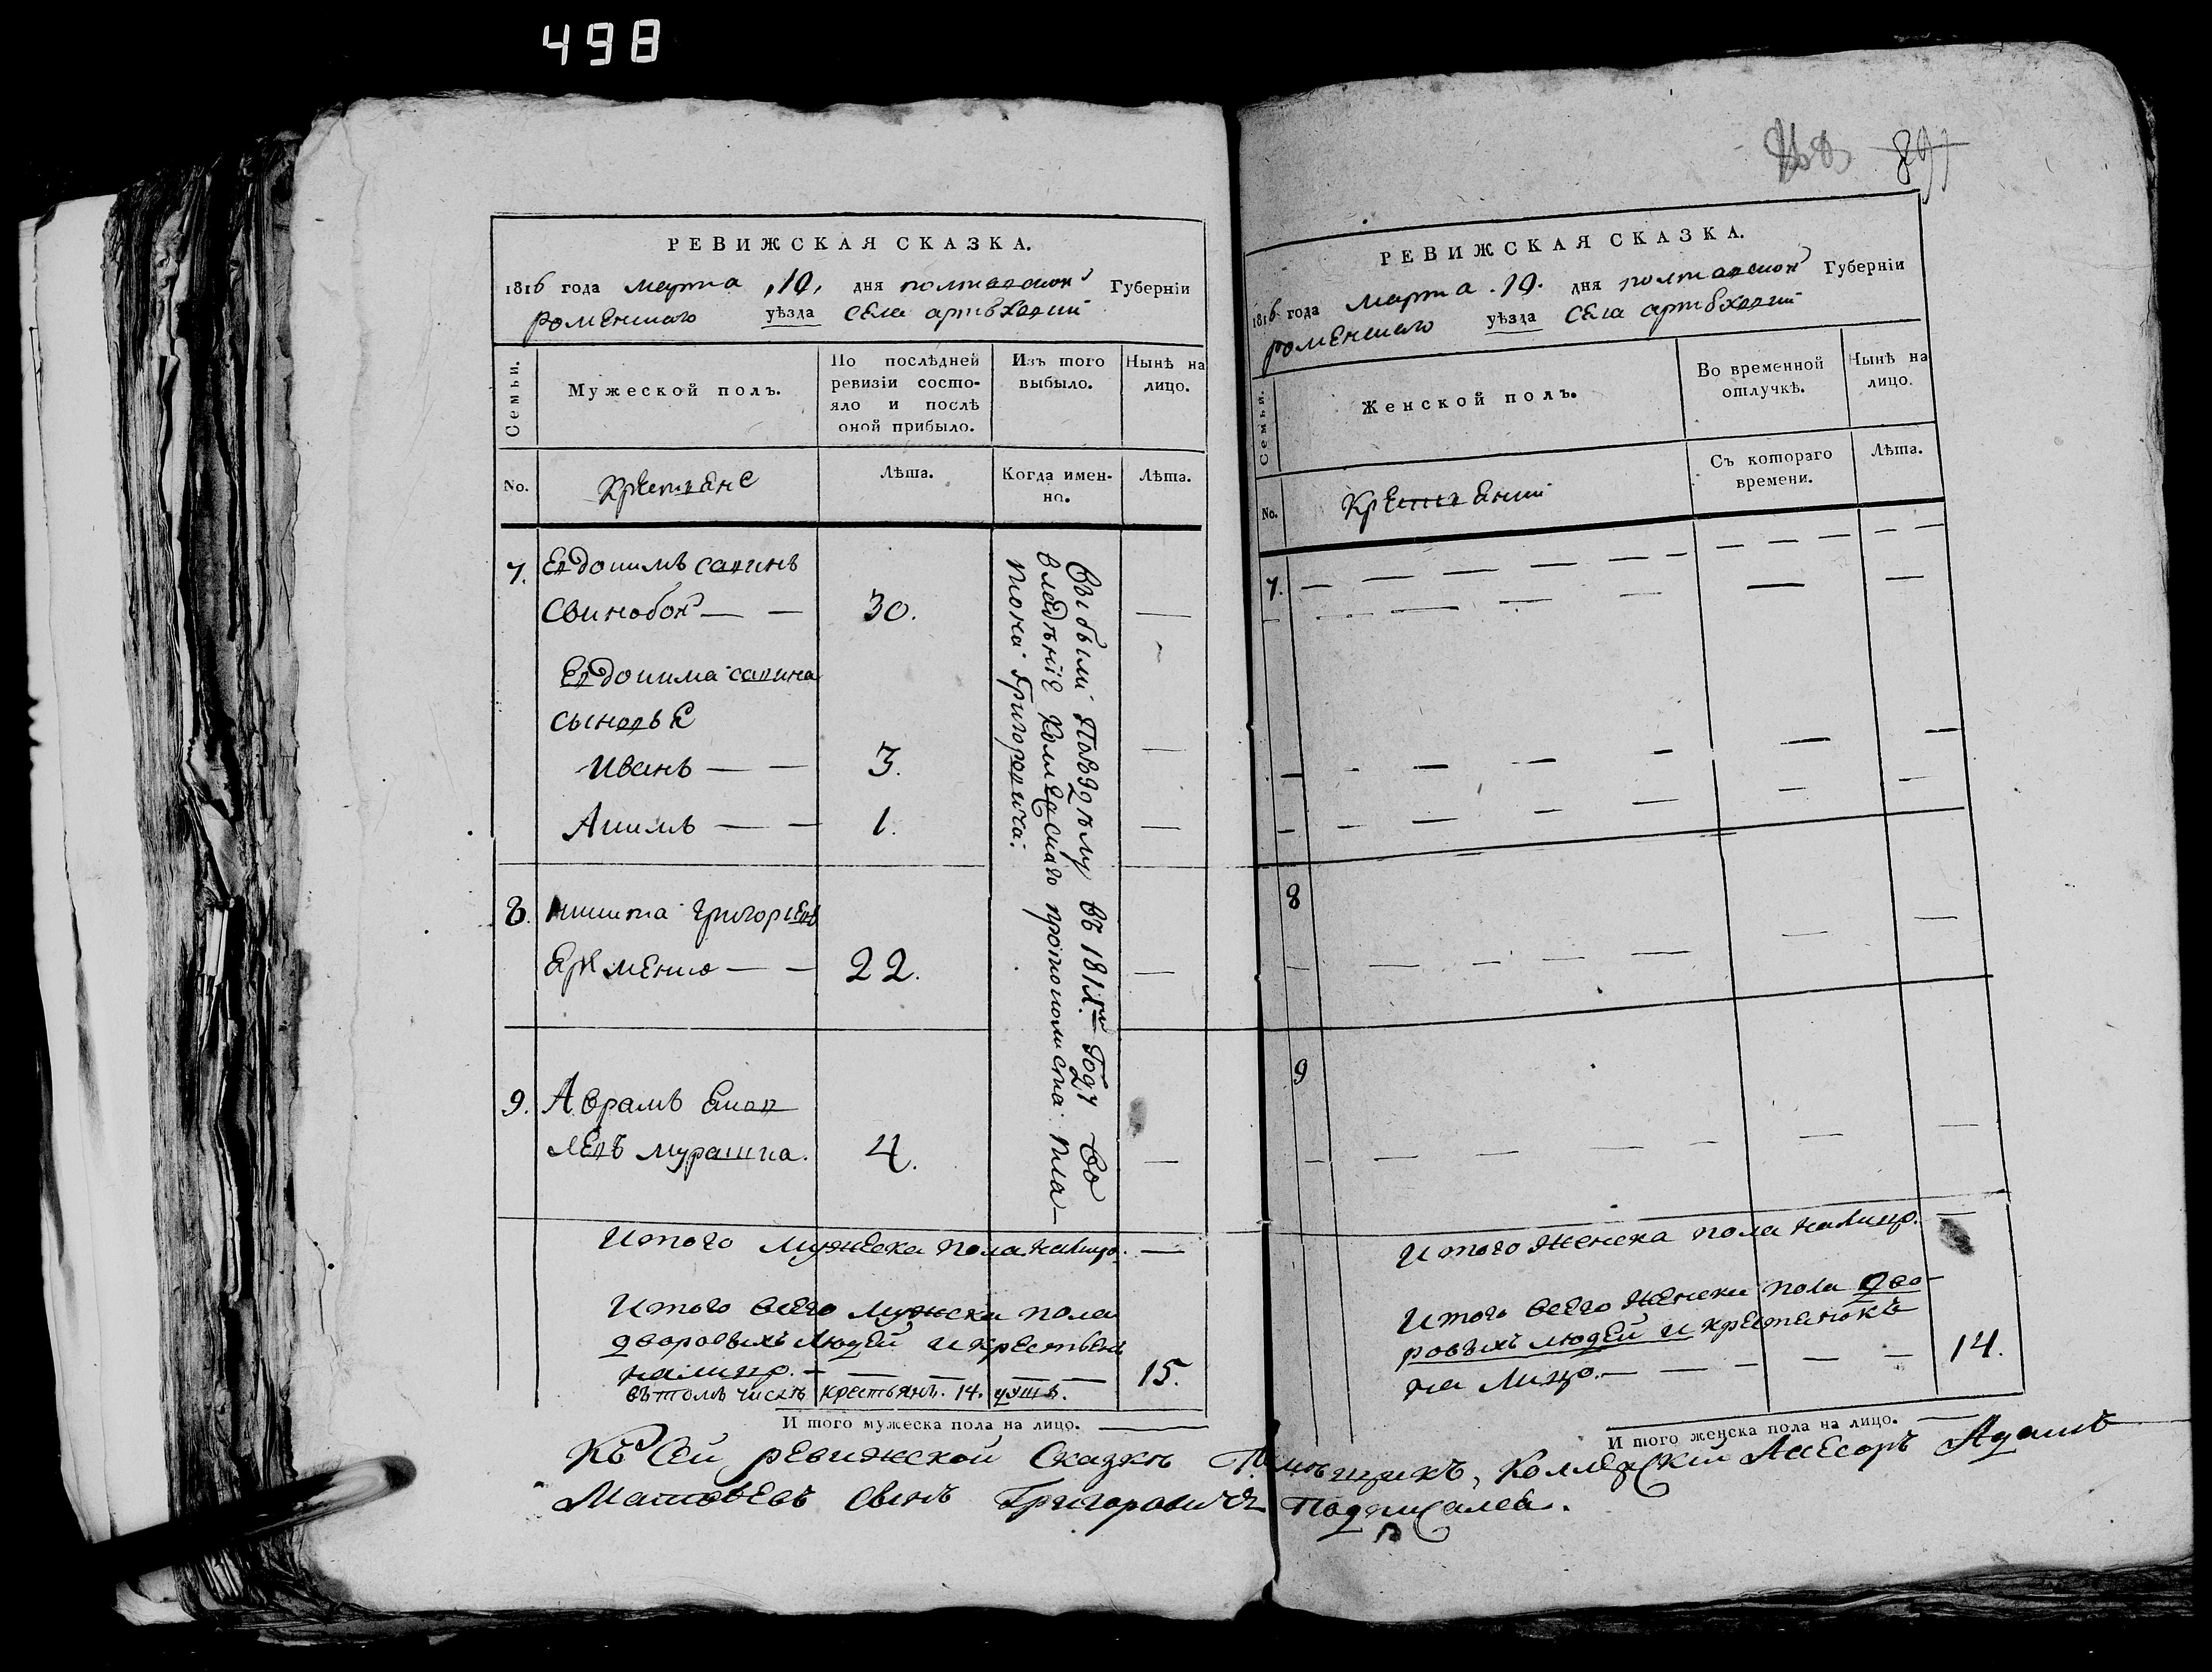 498
РЕВИЖСКАЯ СКАЗКА.
1816 года марта ,10, дня полтавской Губернїи
роменскаго уѣзда села артюховки
Семьи.
Мужеской полъ.
По послѣдней ревизїи состо-
яло и послѣ
оной прибыло.
Изъ того
выбыло.
Нынѣ на
лицо.
No.
Крестьяне
Лѣта.
Когда имен-
но.
Лѣта.
7. Евдокимъ савинъ
Свинобой — — 30. —
Евдокима савина
сыновьѣ
Иванъ — — 3. —
Акимъ — — 1. —
8. никита григорьевъ
Яременко — — 22. —
9. Аврамъ Яков
левъ мурашка. 4. —
Выбыли По раздѣлу въ 181 Году во
владѣнїе Коллежскаго протоколиста Пла-
тона Григоровича.
Итого мужеска пола налицо. —
Итого всего мужска пола
дворовыхъ людей и крестьянъ
налицо. — — — — — 15.
въ томъ числѣ крестьянъ. 14. душъ.
И того мужеска пола на лицо.
РЕВИЖСКАЯ СКАЗКА.
1816 года марта .10. дня полтавской Губернїи
роменскаго уѣзда села артюховки
Семьи.
Женской полъ.
Во временной
отлучкѣ.
Нынѣ на
лицо.
No.
Крестьянки
Съ котораго
времени.
Лѣта.
7.
8
9
Итого женска пола налицо. —
Итого всего женска пола дво-
ровыхъ людей и крестьянокъ
на лицо. — — — — — 14.
И того женска пола на лицо.
Къ сей ревижской Сказкѣ Помѣщикъ, Коллежский Ассесоръ Адамъ
Матвѣевъ Сынъ Григоровичъ Подписался.